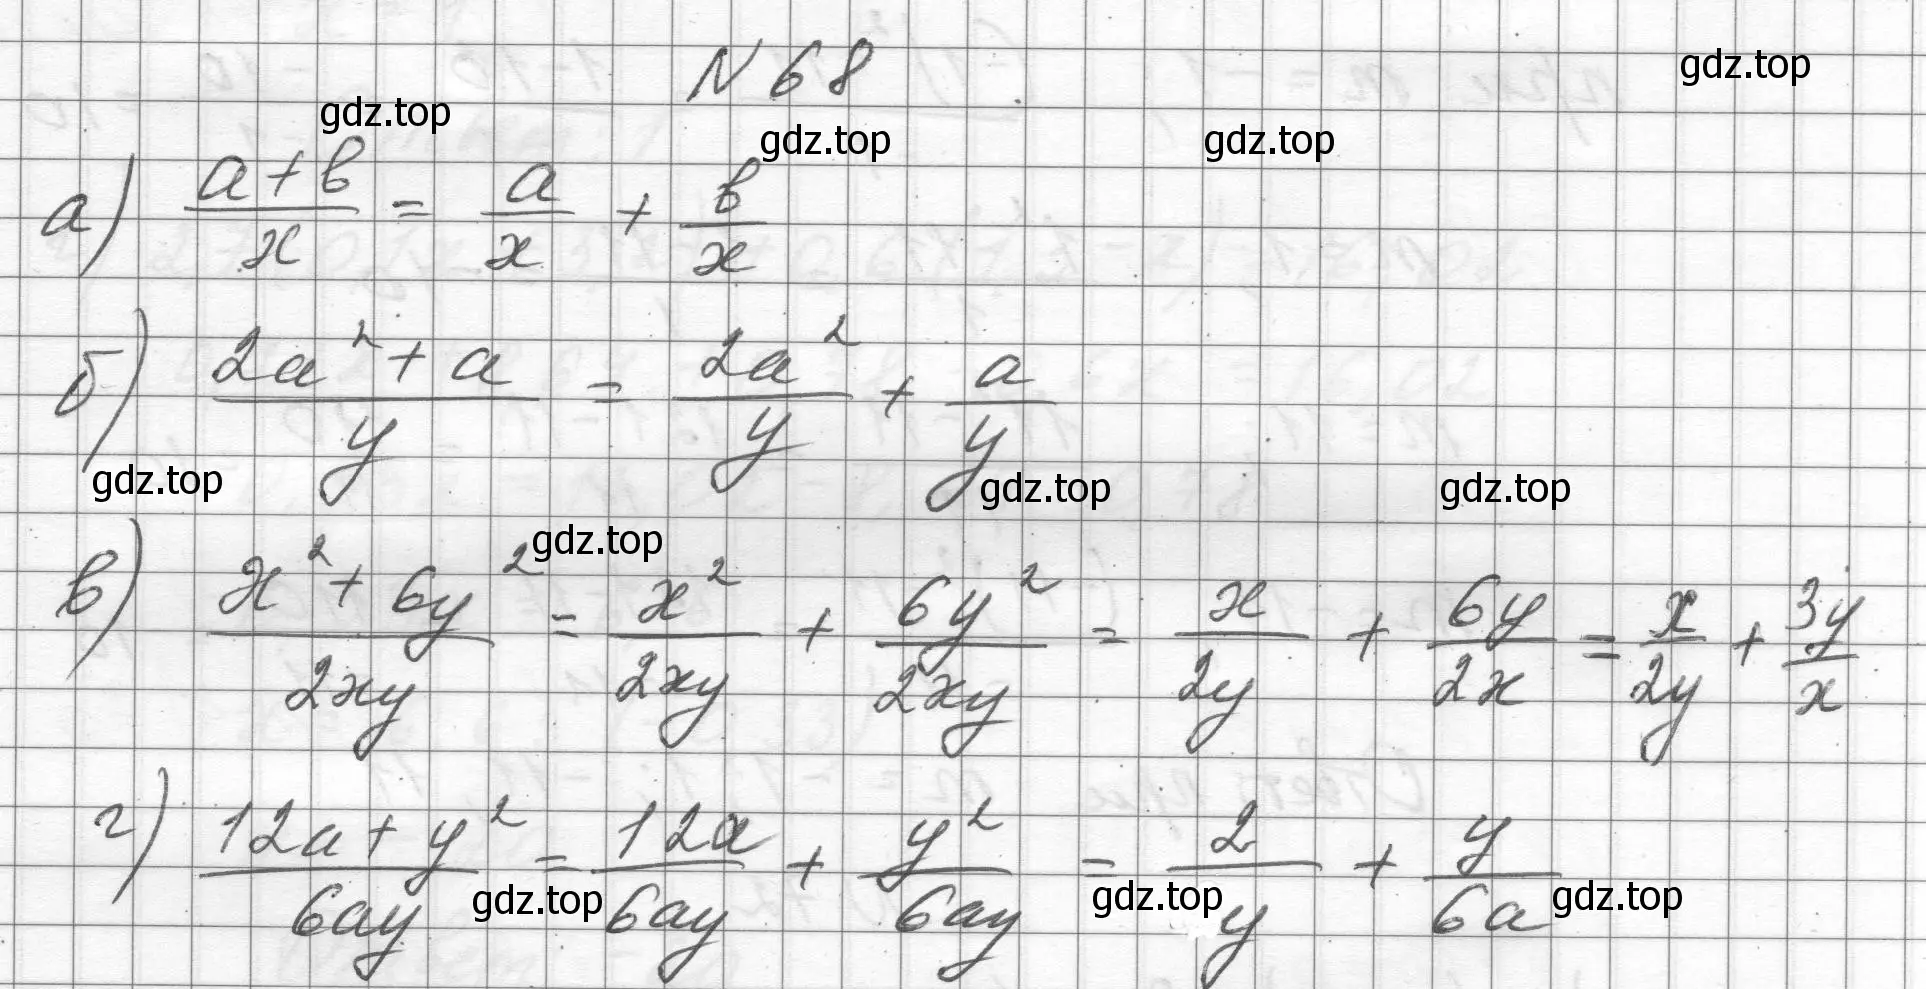 N 68
gdz.top
gdz.top
gdz.top
gdz.top
а) (a+b)/x = a/x + b/x
б) (2a²+a)/y = 2a²/y + a/y
gdz.top
gdz.top
gdz.top
gdz.top
в) (x²+6y²)/2xy = x²/2xy + 6y²/2xy = x/2y + 6y/2x = x/2y + 3y/x
г) (12a+y²)/6ay = 12a/6ay + y²/6ay = 2/y + y/6a
gdz.top
gdz.top
gdz.top